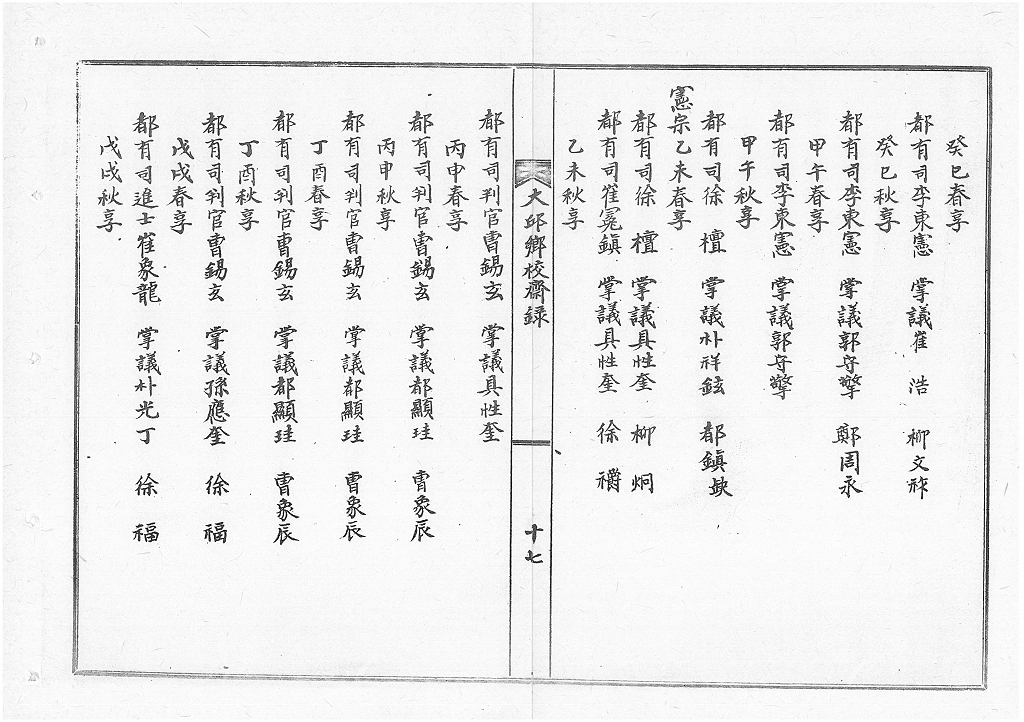 癸巳春享
都有司李東憲 掌議崔浩 柳文祚
癸巳秋享
都有司李東憲 掌議郭守擎 鄭周永
甲午春享
都有司李東憲 掌議郭守擎
甲午秋享
都有司徐檀 掌議朴祥鉉 都鎭
憲宗乙未春享
都有司徐檀 掌議具性奎 柳炯
都有司崔冕鎭 掌議具性奎 徐
乙未秋享
大邱鄉校齋録
十七
都有司判官曺錫玄 掌議具性奎
丙申春享
都有司判官曺錫玄 掌議都顯珪 曺象辰
丙申秋享
都有司判官曺錫玄 掌議都顯珪 曺象辰
丁酉春享
都有司判官曺錫玄 掌議都顯珪 曺象辰
丁酉秋享
都有司判官曺錫玄 掌議孫應奎 徐福
戊戌春享
都有司進士崔象龍 掌議朴光丁 徐福
戊戌秋享